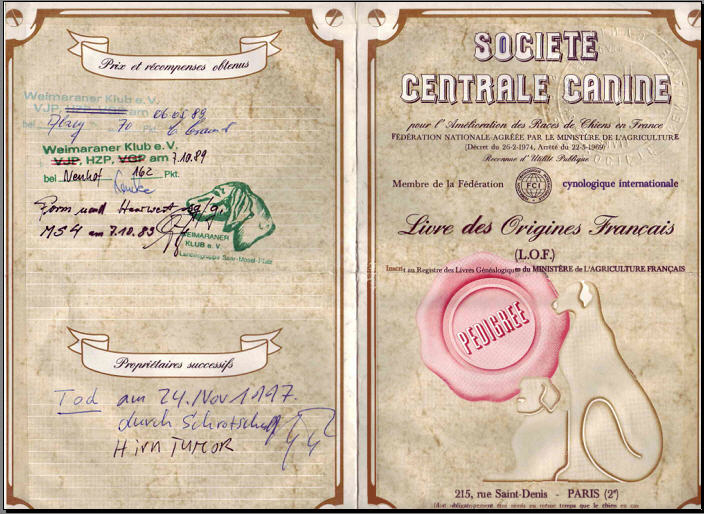 Prix et récompenses obtenus
Weimaraner Klub e. V.
VJP, HZP, VGP am 06.05.89
bei Alzey 70 Pkt.
Weimaraner Klub e. V.
VJP, HZP, VGP am 7.10.89
bei Neuhof 162 Pkt.
Form und Haarwert sg/g
MS4 am 7.10.89
WEIMARANER
KLUB e. V.
Landesgruppe Saar-Mosel-Pfalz
Propriétaires successifs
Tod am 24. Nov 1997.
durch Schrotschuß
Hirn TUMOR
SOCIETE
CENTRALE CANINE
pour l'Amélioration des Races de Chiens en France
FÉDÉRATION NATIONALE AGRÉÉE PAR LE MINISTÈRE DE L'AGRICULTURE
(Décret du 26-2-1974, Arrêté du 22-5-1969)
Reconnue d'Utilité Publique
Membre de la Fédération FCI cynologique internationale
Livre des Origines Français
(L.O.F.)
Inscrit au Registre des Livres Généalogiques du MINISTÈRE de L'AGRICULTURE FRANÇAIS
PEDIGREE
215, rue Saint-Denis - PARIS (2e)